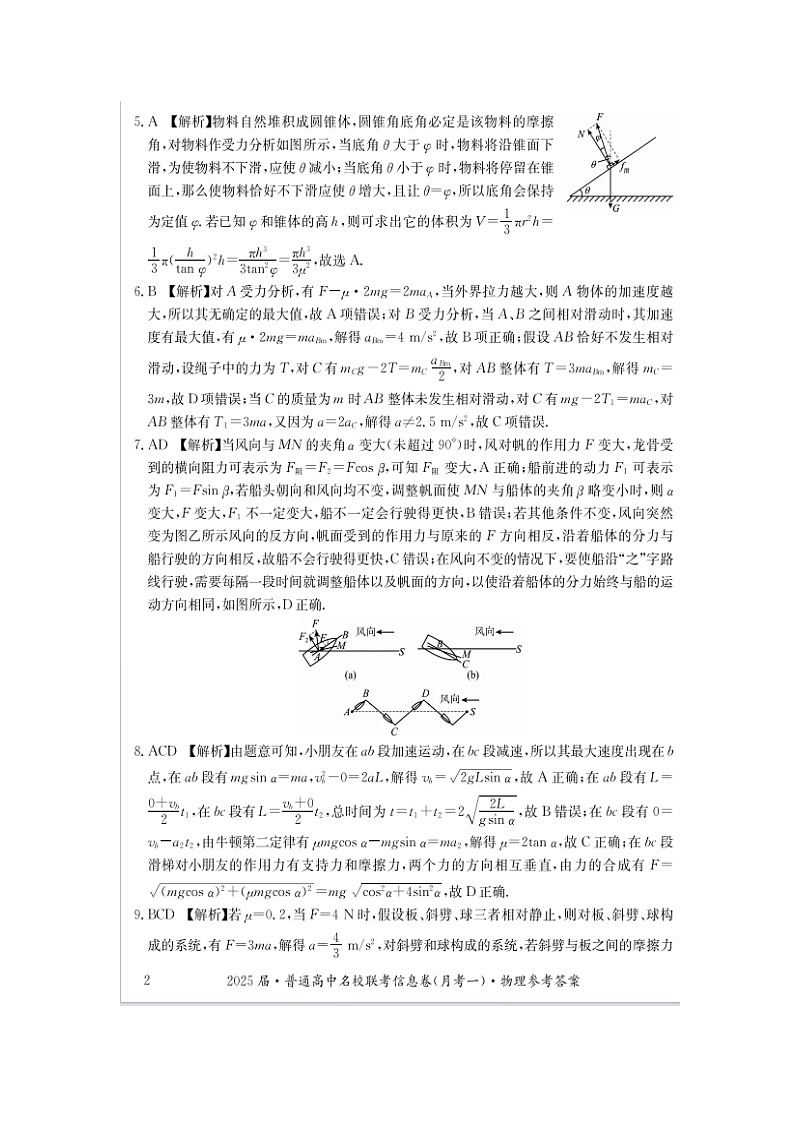 5. A 【解析】物料自然堆积成圆锥体,圆锥角底角必定是该物料的摩擦
角,对物料作受力分析如图所示,当底角 θ 大于 φ 时,物料将沿锥面下
滑,为使物料不下滑,应使 θ 减小;当底角 θ 小于 φ 时,物料将停留在锥
面上,那么使物料恰好不下滑应使 θ 增大,且让 θ=φ,所以底角会保持
为定值 φ. 若已知 φ 和锥体的高 h,则可求出它的体积为 V=1/3 πr²h=
1/3 π(h/tan φ)²h=πh³/3tan²φ=πh³/3μ²,故选 A.
F
N
φ
θ
fm
θ
G
6. B 【解析】对 A 受力分析,有 F−μ·2mg=2maA,当外界拉力越大,则 A 物体的加速度越
大,所以其无确定的最大值,故 A 项错误;对 B 受力分析,当 A、B 之间相对滑动时,其加速
度有最大值,有 μ·2mg=maBm,解得 aBm=4 m/s²,故 B 项正确;假设 AB 恰好不发生相对
滑动,设绳子中的力为 T,对 C 有 mCg−2T=mC aBm/2,对 AB 整体有 T=3maBm,解得 mC=
3m,故 D 项错误;当 C 的质量为 m 时 AB 整体未发生相对滑动,对 C 有 mg−2T₁=maC,对
AB 整体有 T₁=3ma,又因为 a=2aC,解得 a≠2.5 m/s²,故 C 项错误.
7. AD 【解析】当风向与 MN 的夹角 α 变大(未超过 90°)时,风对帆的作用力 F 变大,龙骨受
到的横向阻力可表示为 F阻=F₂=Fcos β,可知 F阻 变大,A 正确;船前进的动力 F₁ 可表示
为 F₁=Fsin β,若船头朝向和风向均不变,调整帆面使 MN 与船体的夹角 β 略变小时,则 α
变大,F 变大,F₁ 不一定变大,船不一定会行驶得更快,B 错误;若其他条件不变,风向突然
变为图乙所示风向的反方向,帆面受到的作用力与原来的 F 方向相反,沿着船体的分力与
船行驶的方向相反,故船不会行驶得更快,C 错误;在风向不变的情况下,要使船沿“之”字路
线行驶,需要每隔一段时间就调整船体以及帆面的方向,以使沿着船体的分力始终与船的运
动方向相同,如图所示,D 正确.
F
F₂ F B 风向
M
A S
(a)
风向
B
S
M
C
(b)
B D 风向
A S
C
8. ACD 【解析】由题意可知,小朋友在 ab 段加速运动,在 bc 段减速,所以其最大速度出现在 b
点,在 ab 段有 mgsin α=ma,vb²−0=2aL,解得 vb=√(2gLsin α),故 A 正确;在 ab 段有 L=
(0+vb)/2 t₁,在 bc 段有 L=(vb+0)/2 t₂,总时间为 t=t₁+t₂=2√(2L/(gsin α)),故 B 错误;在 bc 段有 0=
vb−a₂t₂,由牛顿第二定律有 μmgcos α−mgsin α=ma₂,解得 μ=2tan α,故 C 正确;在 bc 段
滑梯对小朋友的作用力有支持力和摩擦力,两个力的方向相互垂直,由力的合成有 F=
√((mgcos α)²+(μmgcos α)²)=mg √(cos²α+4sin²α),故 D 正确.
9. BCD 【解析】若 μ=0.2,当 F=4 N 时,假设板、斜劈、球三者相对静止,则对板、斜劈、球构
成的系统,有 F=3ma,解得 a=4/3 m/s²,对斜劈和球构成的系统,若斜劈与板之间的摩擦力
2 2025 届·普通高中名校联考信息卷(月考一)·物理参考答案